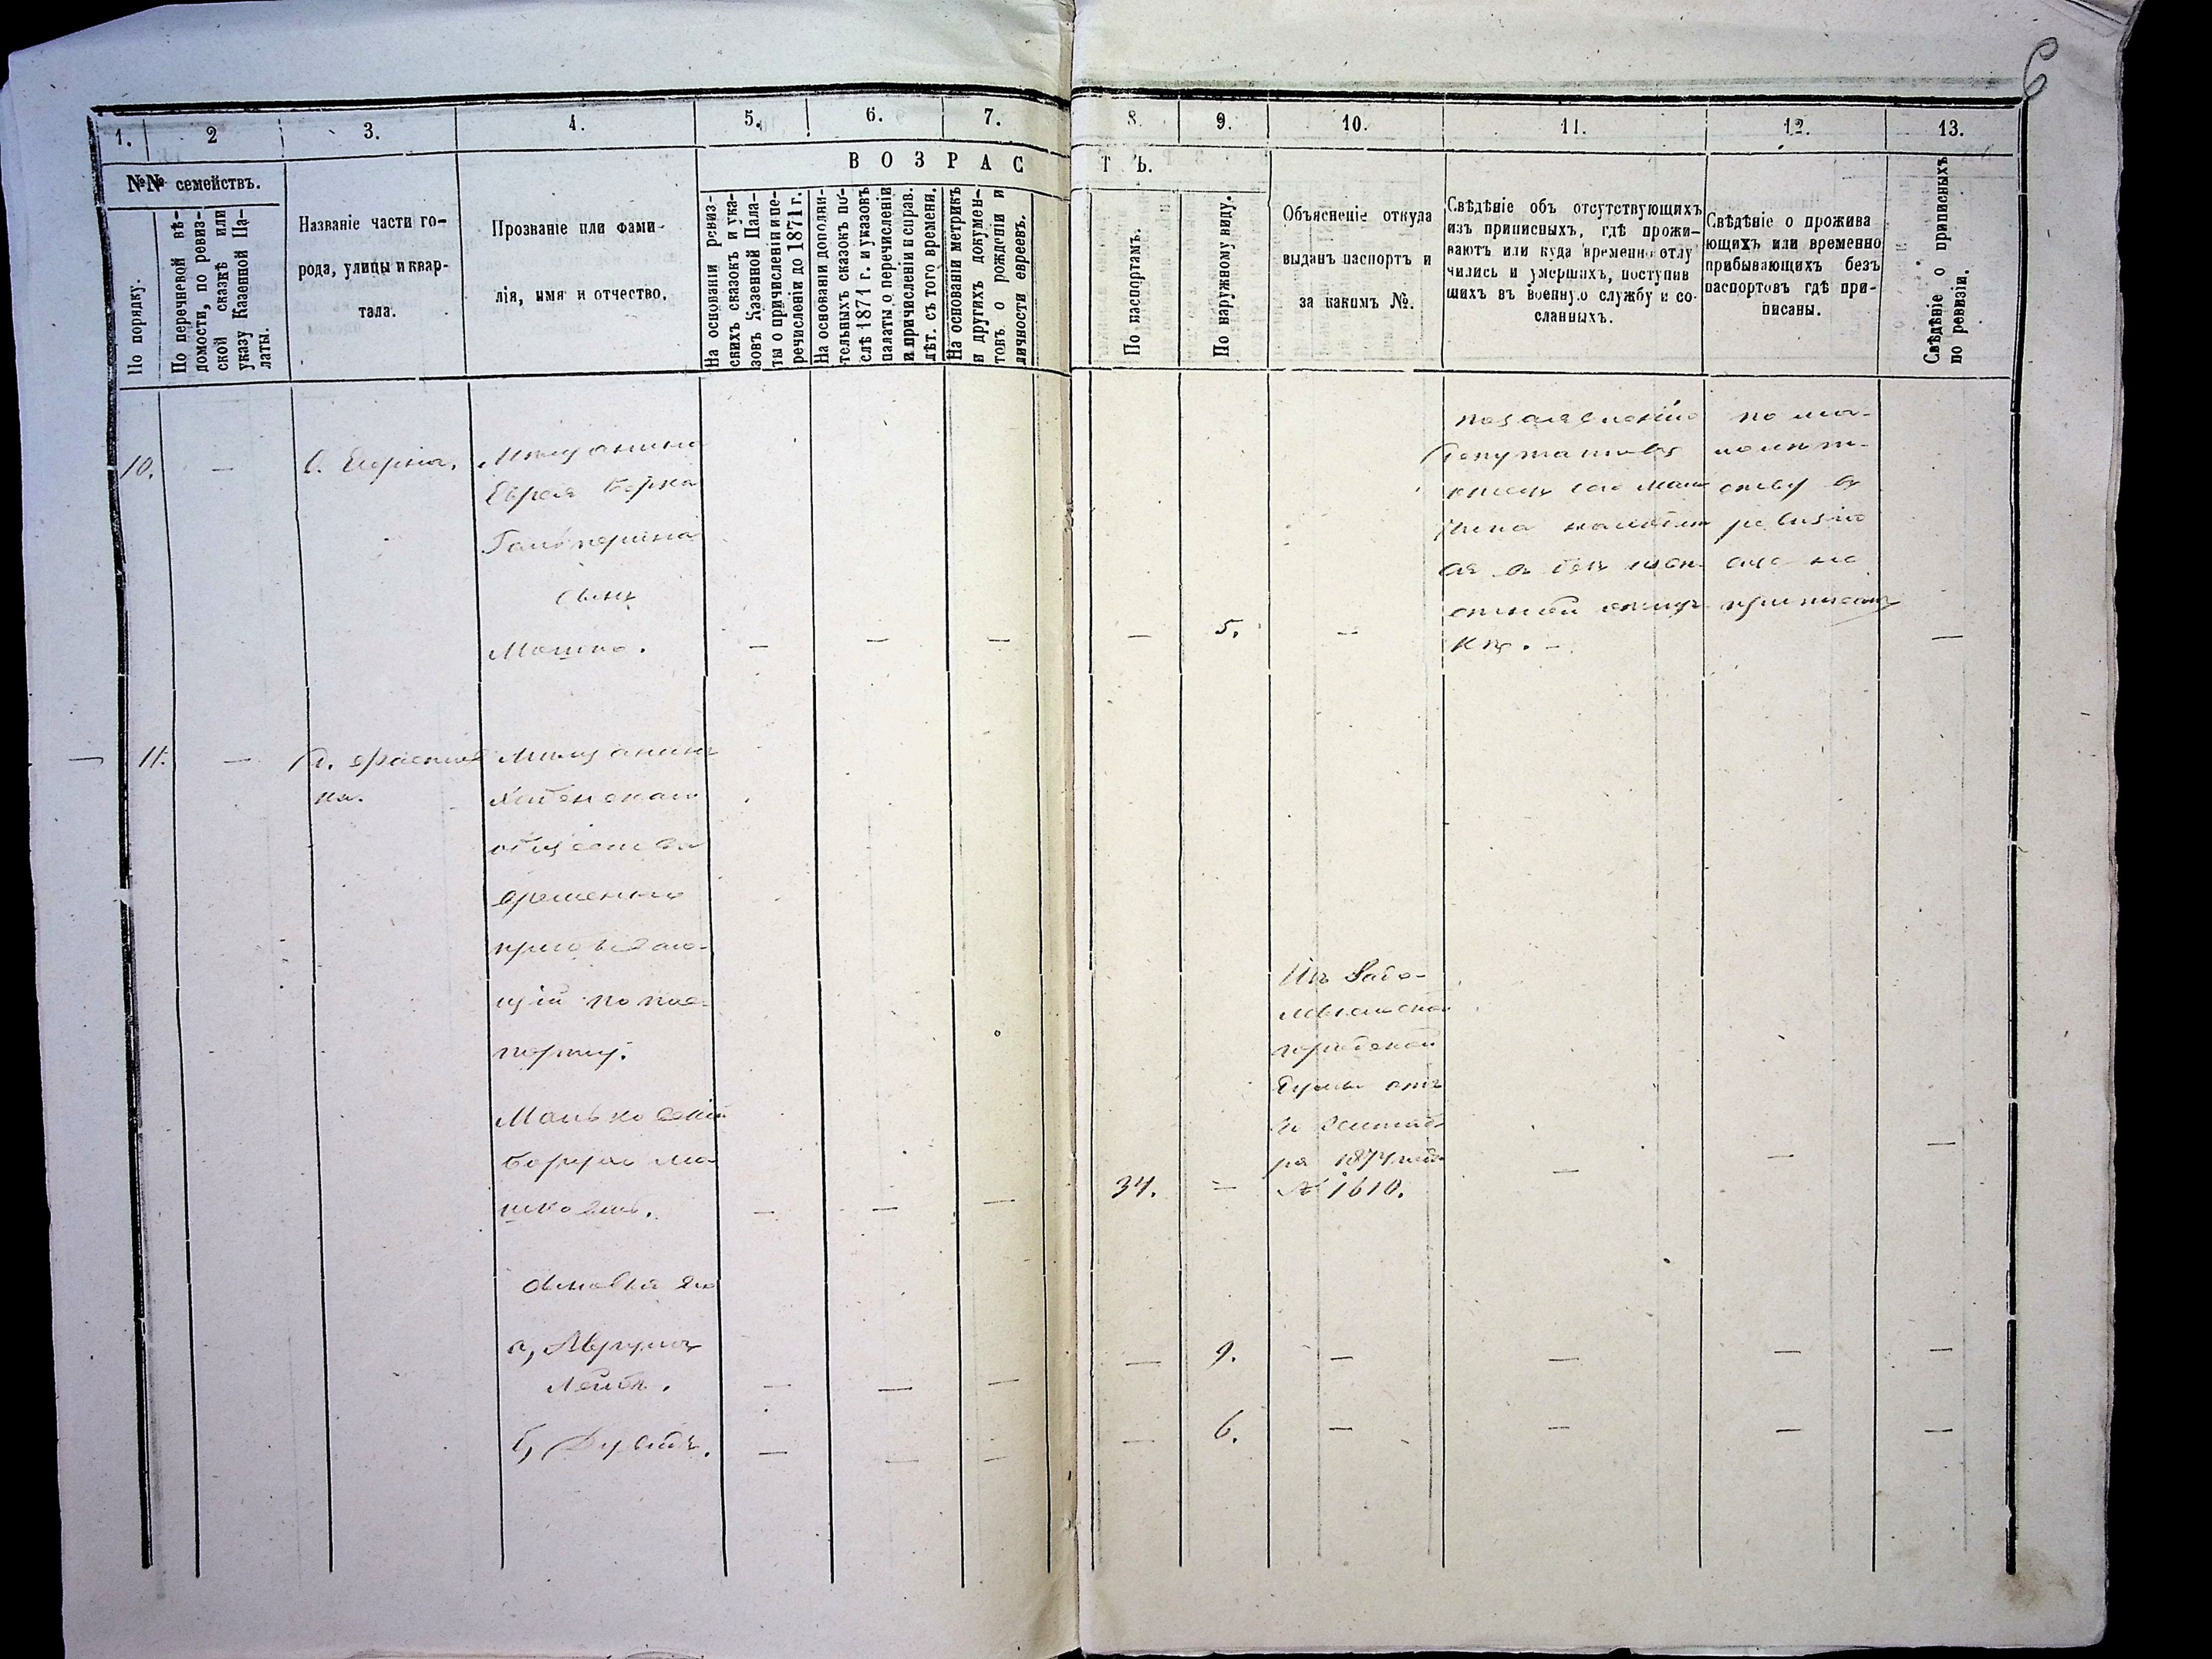 6
1. 2 3. 4. 5. 6. 7. 8. 9. 10. 11. 12. 13.
ВОЗРАСТЪ.
№№ семействъ.
По порядку.
По перечневой вѣ-
домости, по ревиз-
ской сказкѣ или
указу Казенной Па-
латы.
Названіе части го-
рода, улицы и квар-
тала.
Прозваніе или фами-
лія, имя и отчество.
На основаніи ревиз-
скихъ сказокъ и ука-
зовъ Казенной Пала-
ты о причисленіи и пе-
речисленіи до 1871 г.
На основаніи дополни-
тельныхъ сказокъ по-
слѣ 1871 г. и указовъ
палаты о перечисленіи
и причисленіи и справ.
лѣт. съ того времени.
На основаніи метрикъ
и другихъ докумен-
товъ о рожденіи и
личности евреевъ.
По паспортамъ.
По наружному виду.
Объясненіе откуда
выданъ паспортъ и
за какимъ №.
Свѣдѣніе объ отсутствующихъ
изъ приписныхъ, гдѣ прожи-
ваютъ или куда временно отлу
чились и умершихъ, поступив
шихъ въ военную службу и со-
сланныхъ.
Свѣдѣніе о прожива
ющихъ или временно
прибывающихъ безъ
паспортовъ гдѣ при-
писаны.
Свѣдѣніе о приписныхъ
по ревизіи.
10. —
Мѣщанина
Еврея Берка
Гальперина
сынъ
Мошко. — — — — 5. — —
по заявленію
Депутатовъ
отлуч-
кѣ. —
по ма-
лолѣт-
ству въ
ревизію
еще не
приписанъ
— 11. —
Мѣщанинъ
общества
временно
прибываю-
щій по пас-
порту.
Маньковскій
— — — 34. —
Изъ Радо-
мысльской
городской
Думы отъ
Сентяб-
ря 1874 года
№ 1610.
— — —
сыновья его
а, 
Лейба. — — — — 9. — — — —
б, Дувидъ. — — — — 6. — — — —